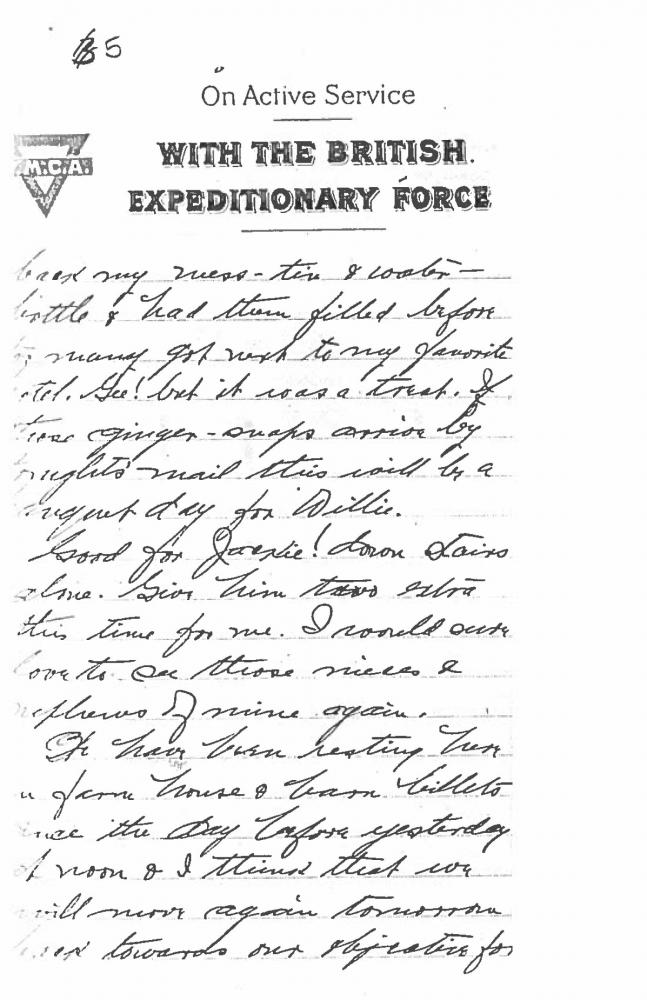 B5
On Active Service
WITH THE BRITISH
EXPEDITIONARY FORCE
M.C.A.
back my mess-tin & water-
bottle & had them filled before
many got next to my favorite
Gee! but it was a treat. If
those ginger-snaps arrive by
tonights mail this will be a
day for Willie.
Good for Jackie! down stairs
alone. Give him two extra
this time for me. I would sure
love to see those nieces &
nephews of mine again.
We have been resting here
in farm house & barn billets
since the day before yesterday
at noon & I think that we
will move again tomorrow
back towards our objective for